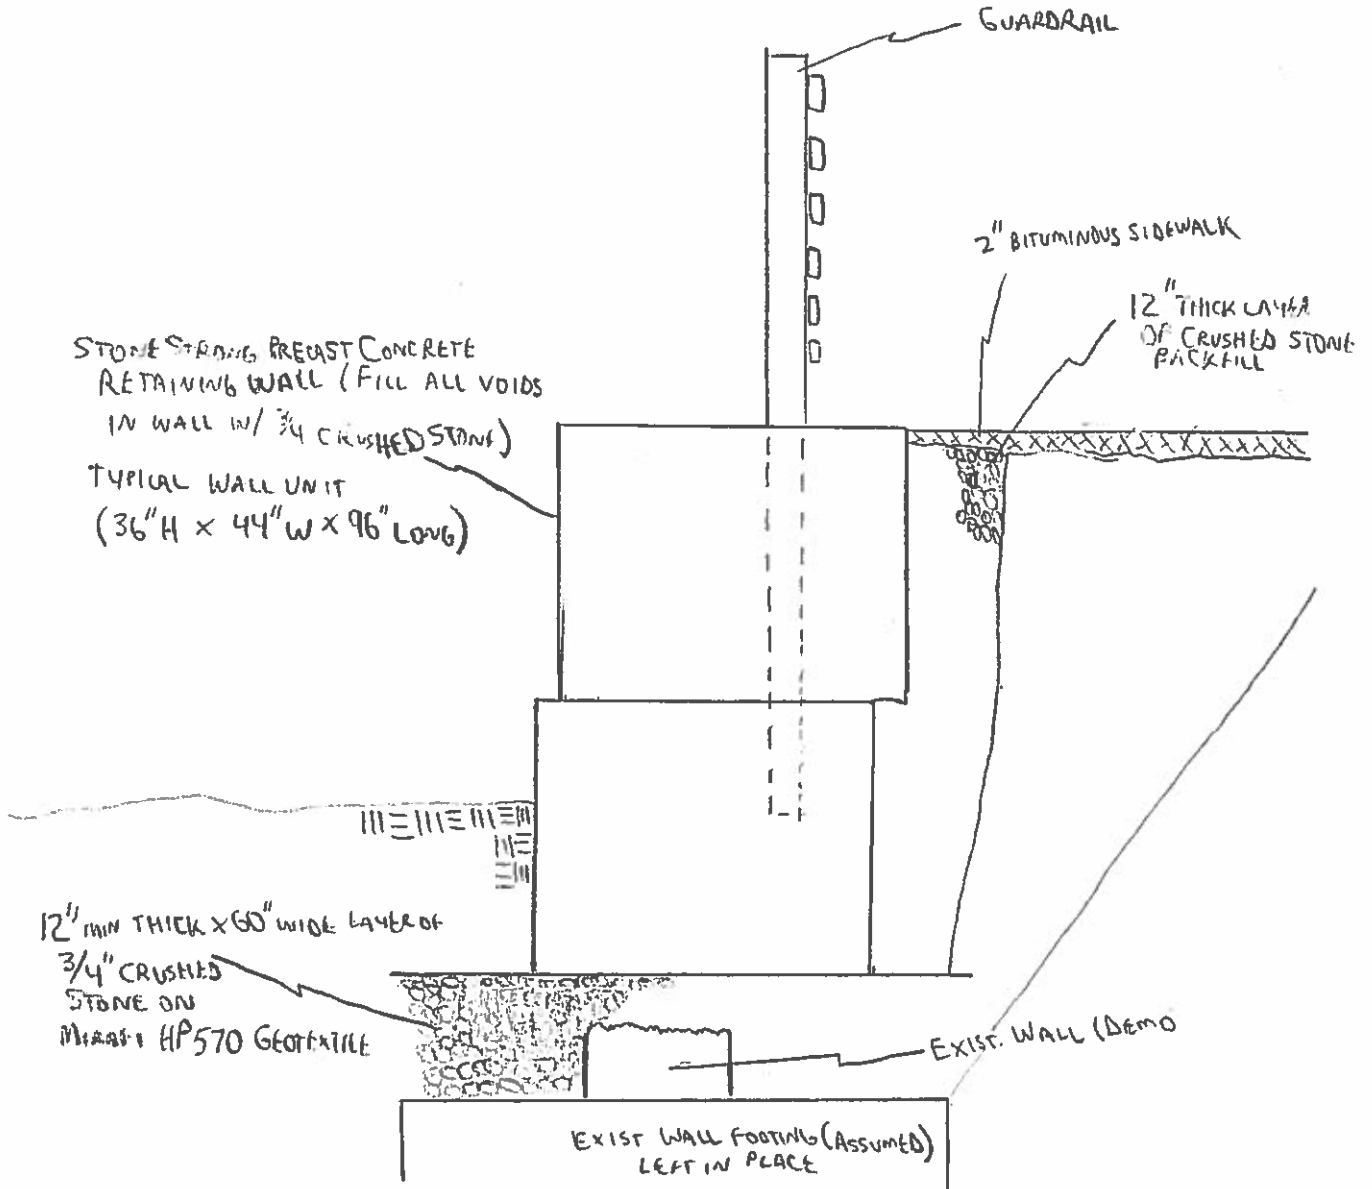 GUARDRAIL
2" BITUMINOUS SIDEWALK
12" THICK LAYER
OF CRUSHED STONE
BACKFILL
STONE STRONG PRECAST CONCRETE
RETAINING WALL (FILL ALL VOIDS
IN WALL W/ 3/4 CRUSHED STONE)
TYPICAL WALL UNIT
(36"H x 44"W x 96" LONG)
12" MIN THICK x 60" WIDE LAYER OF
3/4" CRUSHED
STONE ON
MIRAFI HP570 GEOTEXTILE
EXIST. WALL (DEMO
EXIST WALL FOOTING (ASSUMED)
LEFT IN PLACE